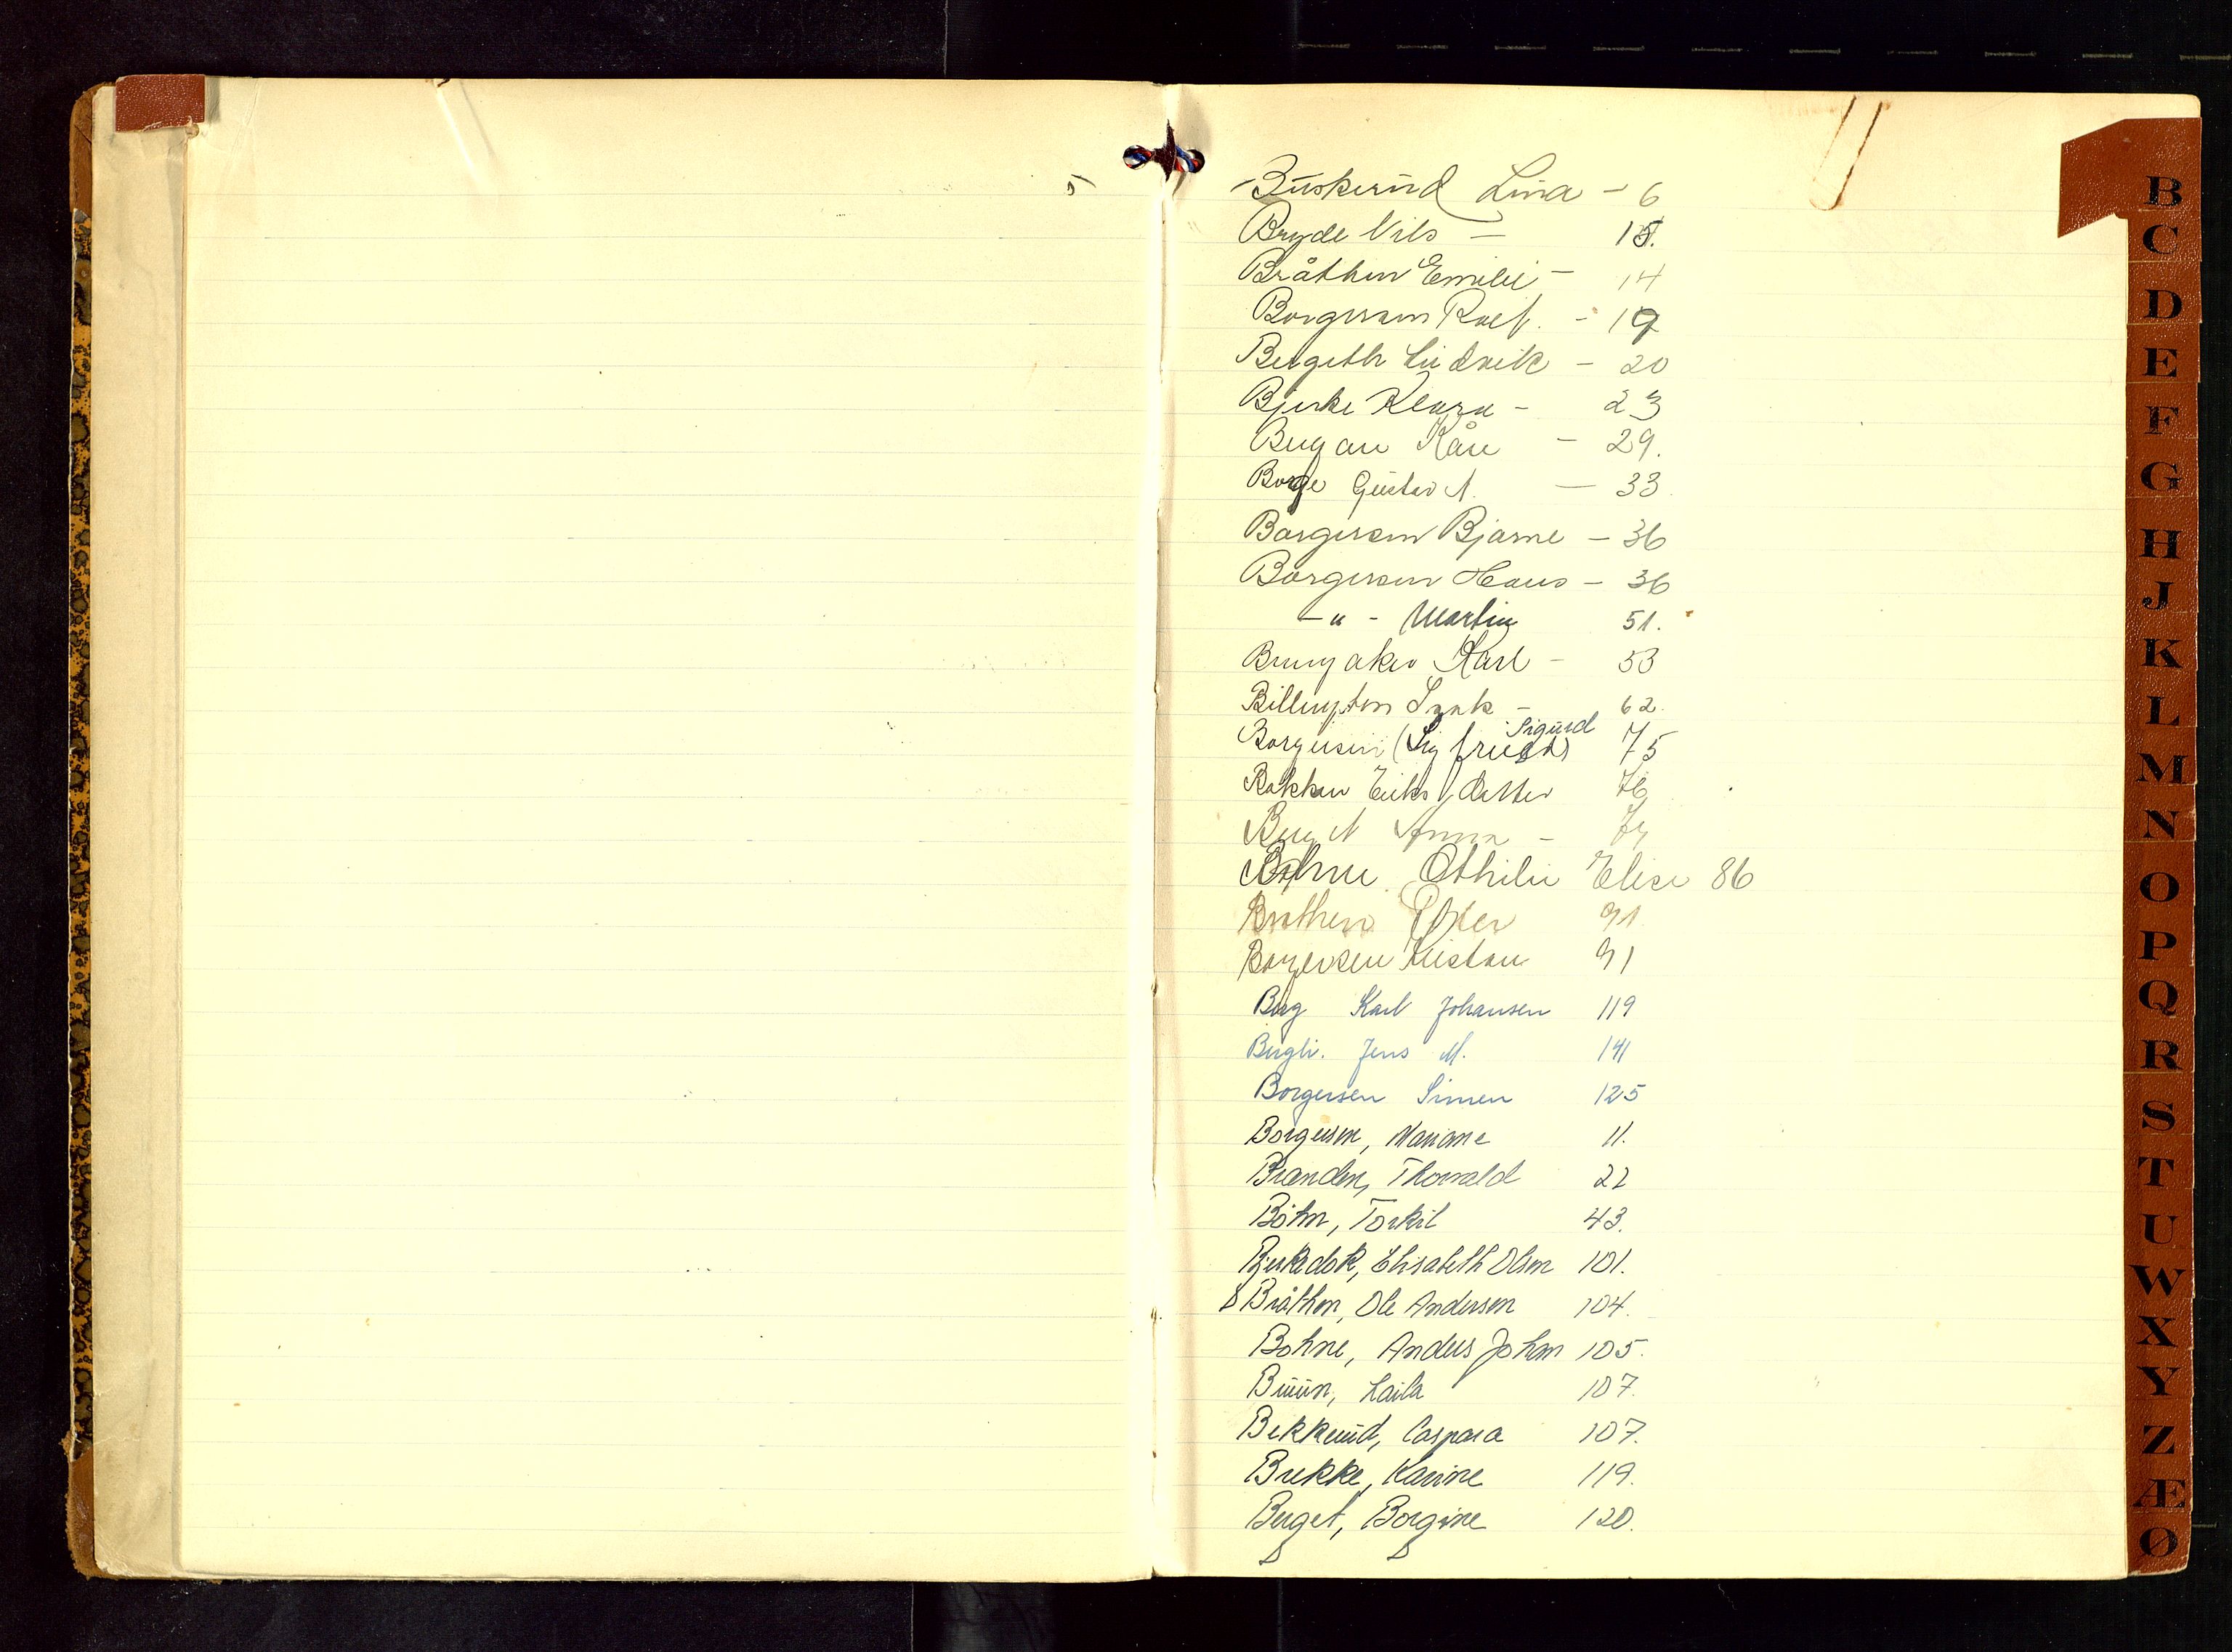 Buskerud Lina - 6
Bryde Nils - 15.
Bråthen Emilie - 14
Borgersen Rolf. - 19
Bergeth Ludvik - 20
Bjerke Klara - 23
Bergan Kåre - 29.
Borge Gustav A. - 33
Borgersen Bjarne - 36
Borgersen Hans - 36
-"- Martin 51.
Karl - 53
Billington Isak - 62.
Sigurd
Borgersen (Sigfried) 75
Bakken Eriks datter 76
Berg A Anna -
Othilie Elise 86
Bråthen Peter 91
Borgersen Kristian 91
Berg Karl Johansen 119
Bergli. Jens M. 141
Borgersen Simen 125
Borgersen, Mariane 11.
Brænden, Thorvald 22
Böhn, Torkil 43.
Elisabeth Olsen 101.
Bråthen, Ole Andersen 104.
Bohne, Anders Johan 105.
Buun, Laila 107.
Bekkerud, Caspara 107.
Brekke, Karine 119.
Berget, Borgine 120.
B
C
D
E
F
G
H
J
K
L
M
N
O
P
Q
R
S
T
U
W
X
Y
Z
Æ
Ø